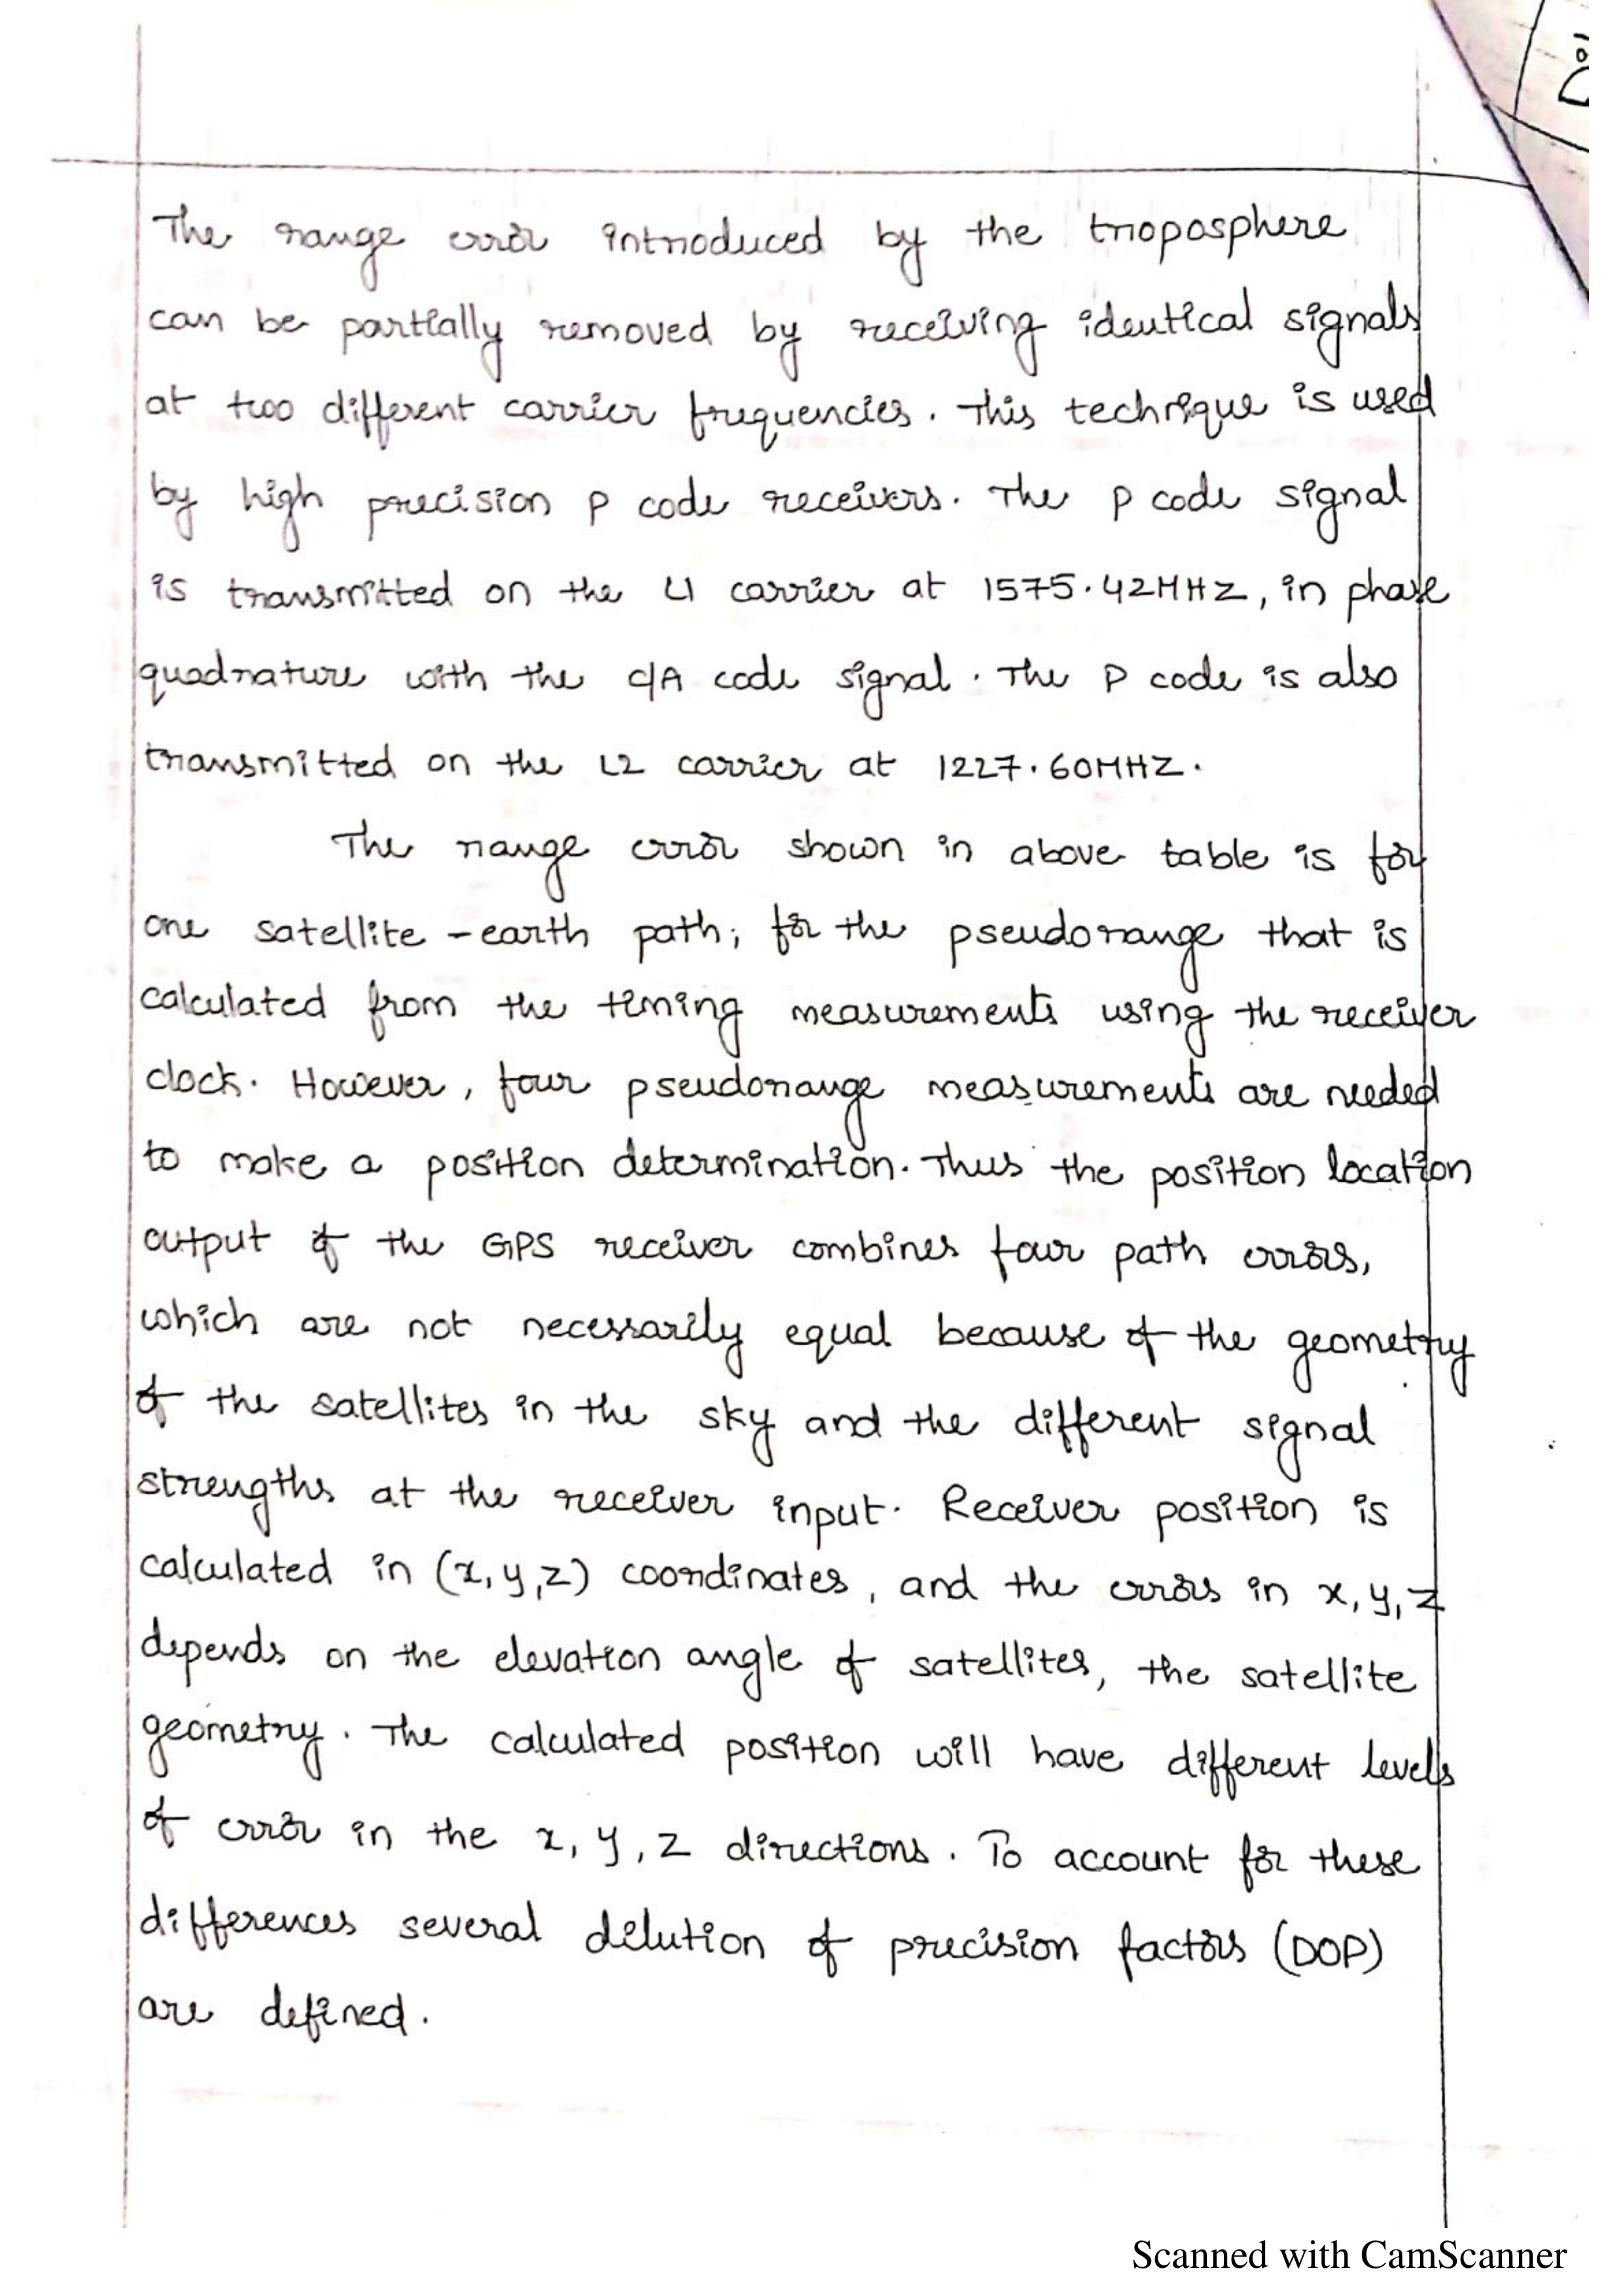 The range error introduced by the troposphere
can be partially removed by receiving identical signals
at two different carrier frequencies. This technique is used
by high precision P code receivers. The P code signal
is transmitted on the L1 carrier at 1575.42MHZ, in phase
quadrature with the C/A code signal. The P code is also
transmitted on the L2 carrier at 1227.60MHZ.
The range error shown in above table is for
one satellite - earth path; for the pseudorange that is
calculated from the timing measurements using the receiver
clock. However, four pseudorange measurements are needed
to make a position determination. Thus the position location
output of the GPS receiver combines four path errors,
which are not necessarily equal because of the geometry
of the satellites in the sky and the different signal
strengths at the receiver input. Receiver position is
calculated in (x, y, z) coordinates, and the errors in x, y, z
depends on the elevation angle of satellites, the satellite
geometry. The calculated position will have different levels
of error in the x, y, z directions. To account for these
differences several delution of precision factors (DOP)
are defined.
Scanned with CamScanner